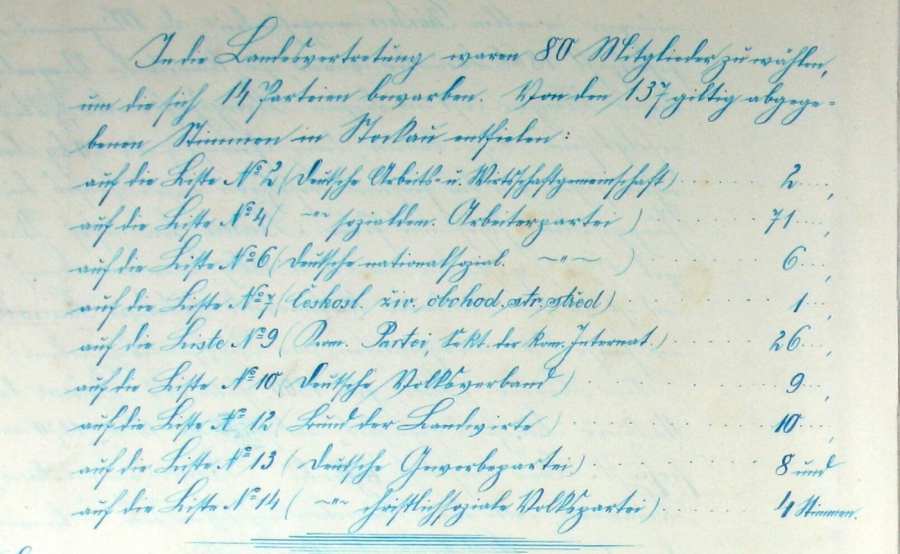 In die Landesvertretung waren 80 Mitglieder zu wählen,
um die sich 14 Parteien bewarben. Von den 137 giltig abgege-
benen Stimmen in Stockau entfielen:
auf die Liste № 2 (Deutsche Arbeits- u. Wirtschaftgemeinschaft) ....... 2....,
auf die Liste № 4 ( –"– sozialdem. Arbeiterpartei ) ....... 71....,
auf die Liste № 6 (Deutsche nationalsozial. –"– ) ....... 6...,
auf die Liste № 7 (českosl. živ. obchod. str. střed) ....... 1...,
auf die Liste № 9 (Kom. Partei, Sekt. der kom. Internat.) ....... 26...,
auf die Liste № 10 (Deutsche Volksverband) ....... 9...,
auf die Liste № 12 (Bund der Landwirte ) ....... 10...,
auf die Liste № 13 (Deutsche Gewerbepartei) ....... 8 und
auf die Liste № 14 ( –"– christlichsoziale Volkspartei) ....... 4 Stimmen.